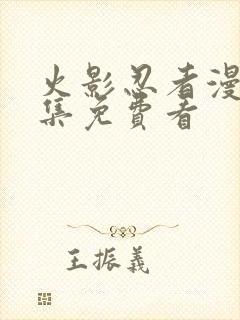 火影忍者漫
集免費看
王振義